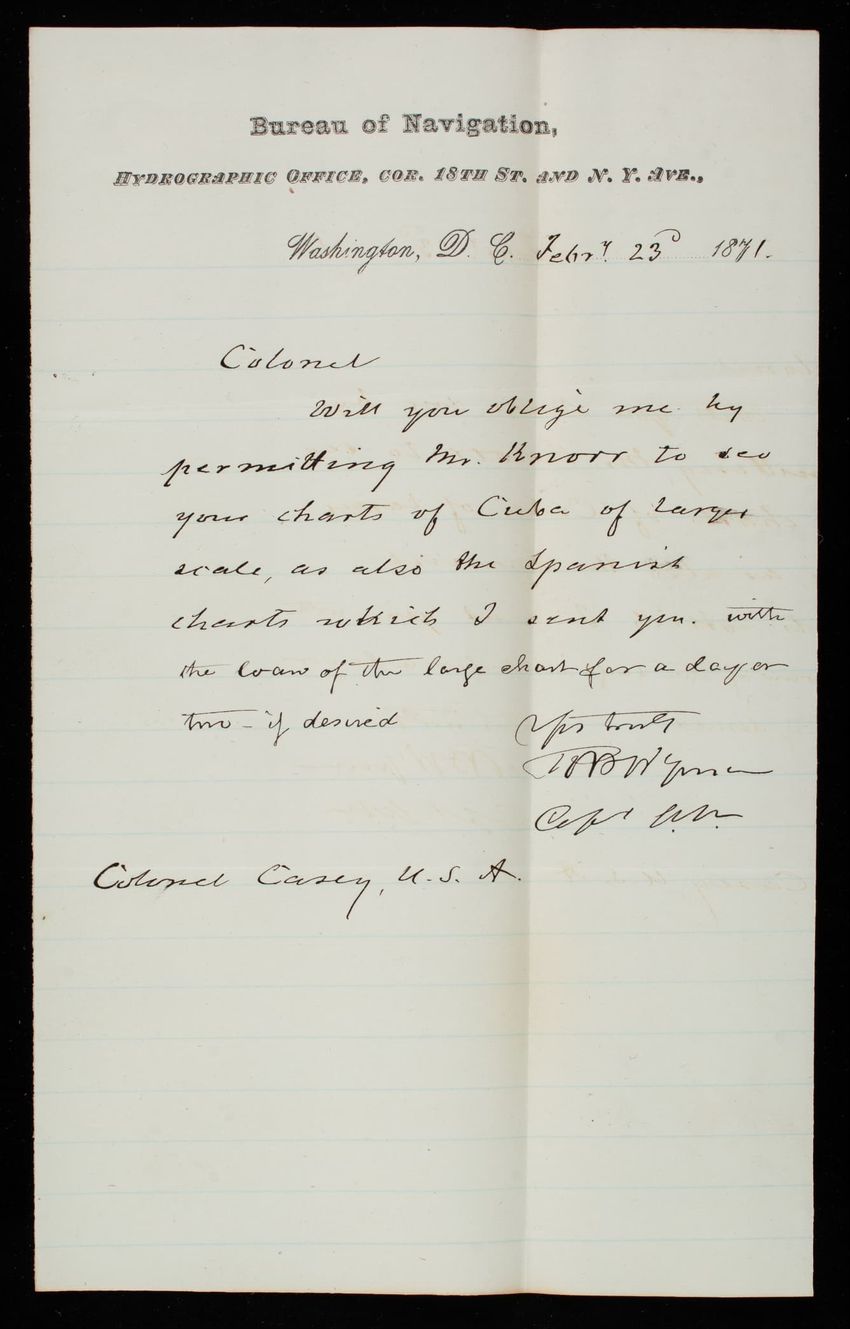 Bureau of Navigation,
HYDROGRAPHIC OFFICE, COR. 18TH ST. AND N. Y. AVE.,
Washington, D. C. Febry. 23d 1871.
Colonel
Will you oblige me by
permitting Mr. Knorr to see
your charts of Cuba of larger
scale, as also the Spanish
charts which I sent you. with
the loan of the large chart for a day or
two - if desired
Yrs truly
R H Wyman
Capt U.S.N.
Colonel Casey, U. S. A.